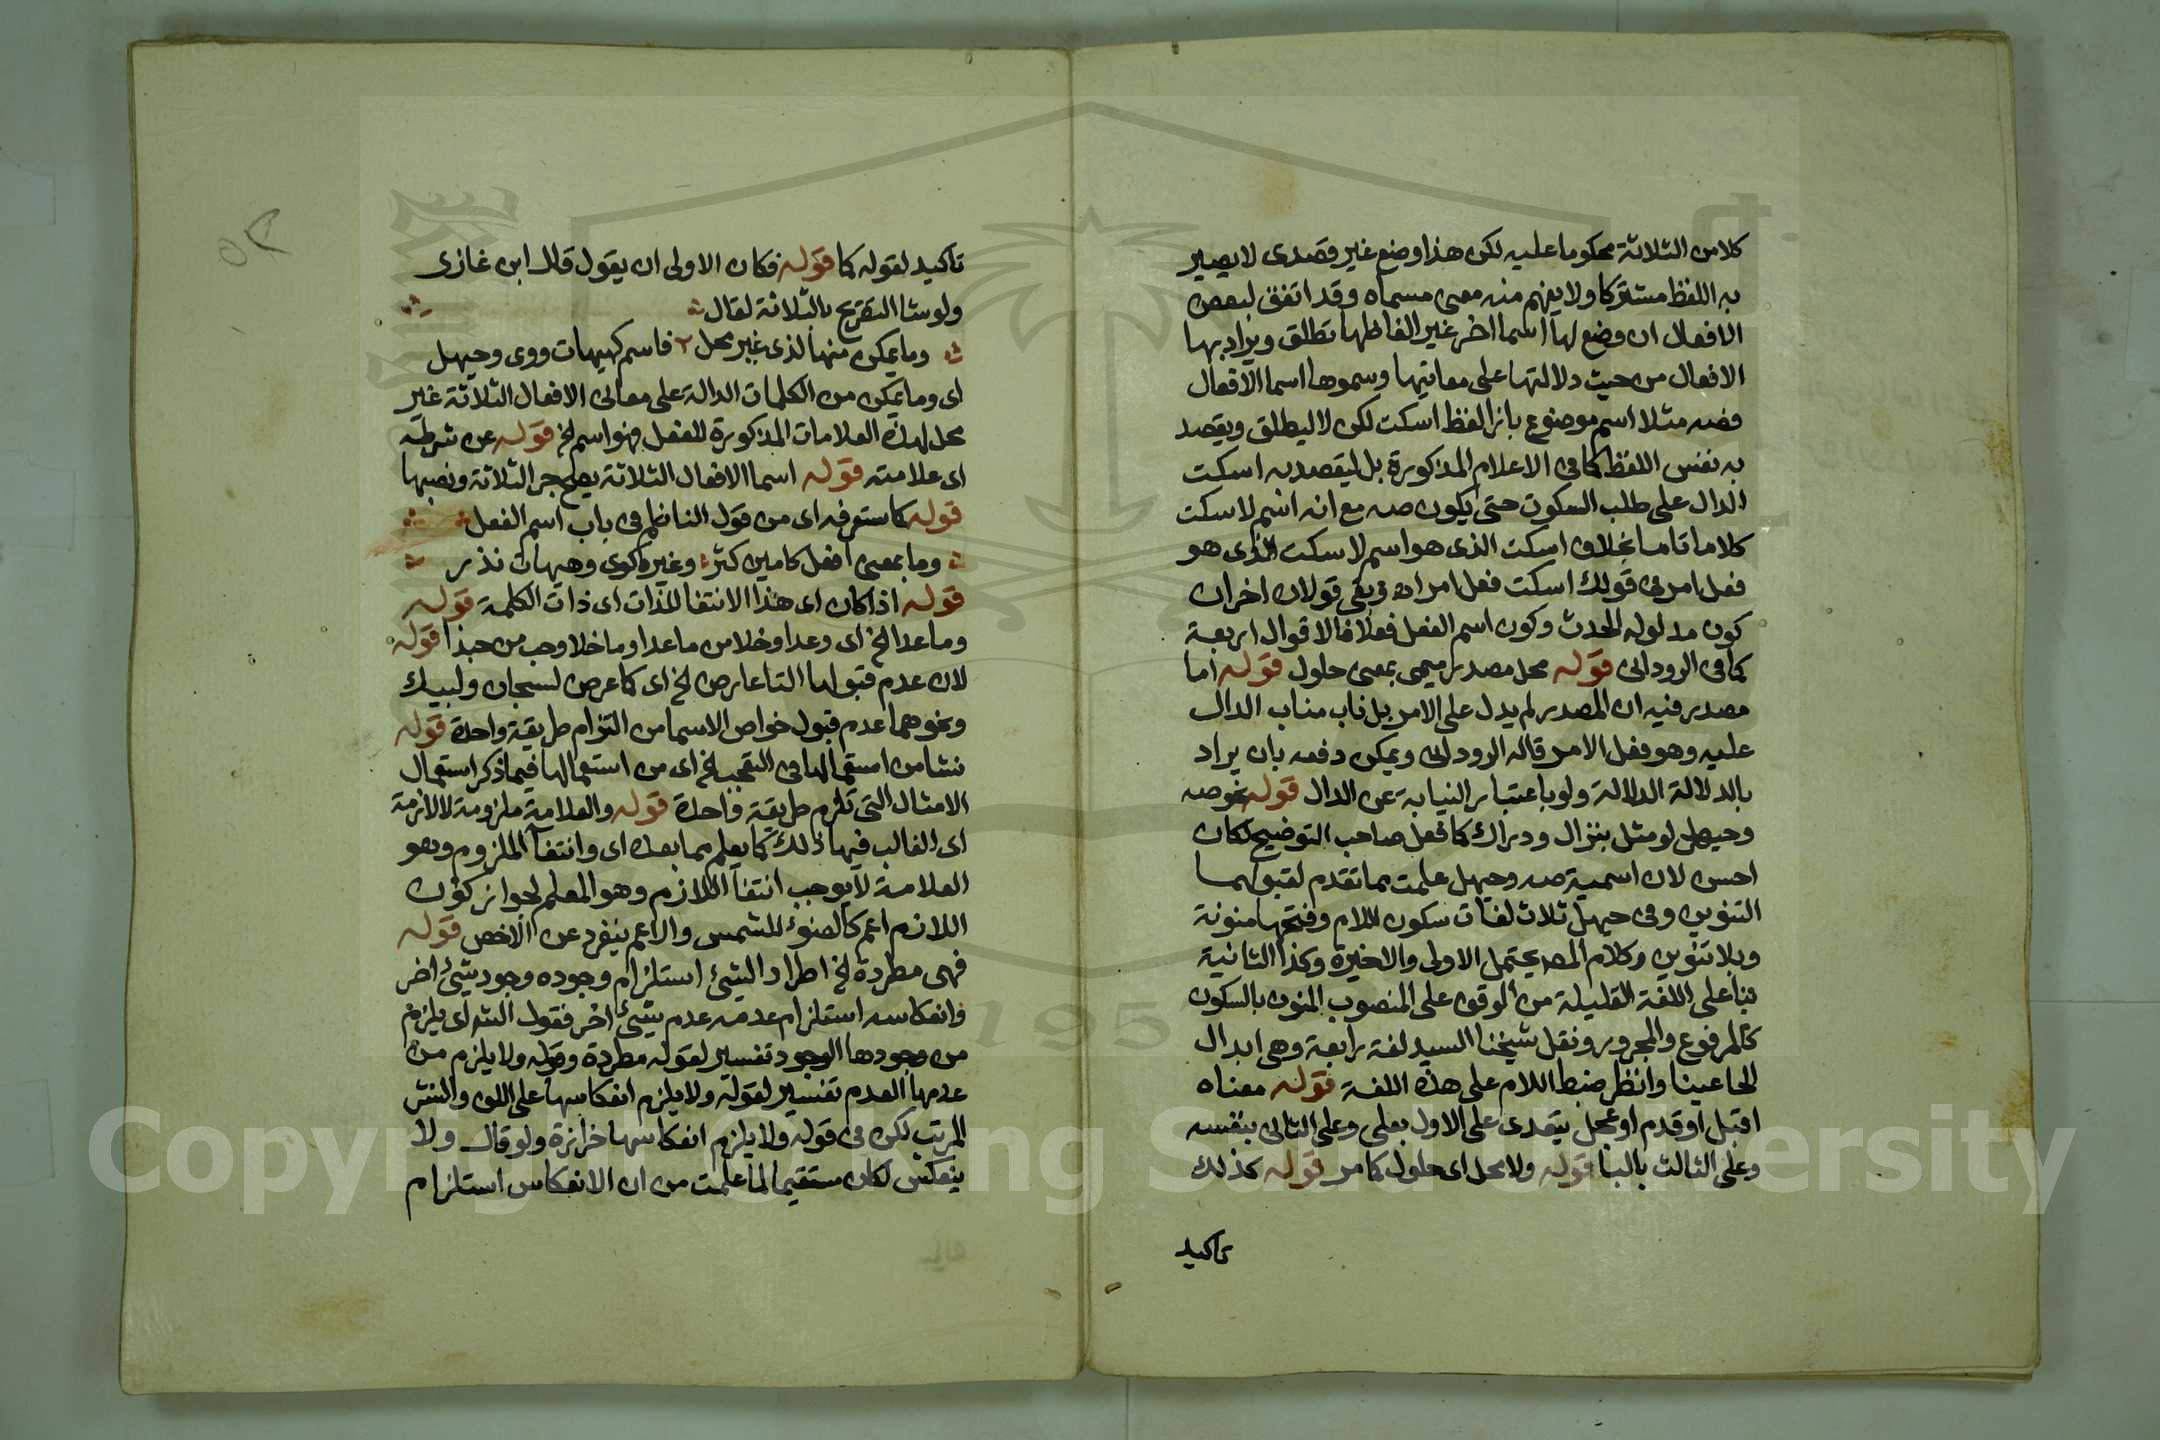 كلا من الثلاثة محكوما عليه لكن هذا وضع غير قصدى لا يصير
به اللفظ مشتركا ولا يفهم منه معنى مسماه وقد اتفق لبعض
الافعال ان وضع لها اسما اخر غير الفاظها تطلق ويراد بها
الافعال من حيث دلالتها على معانيها وسموها اسما الافعال
فصه مثلا اسم موضوع بازا لفظ اسكت لكن لا ليطلق ويقصد
به نفس اللفظ كما فى الاعلام المذكورة بل ليقصد به اسكت
الدال على طلب السكوت حتى يكون صه مع انه اسم لاسكت
كلاما تاما بخلاف اسكت الذى هو اسم لاسكت الذى هو
فعل امر فى قولك اسكت فعل امر اه وبقى قولان اخران
كون مدلوله الحدث وكون اسم الفعل فعلا فالاقوال اربعة
كما فى الرودانى قوله محل مصدر ميمى بمعنى حلول قوله اما
مصدر فيه ان المصدر لم يدل على الامر بل ناب مناب الدال
عليه وهو فعل الامر قاله الرودانى ويمكن دفعه بان يراد
بالدلالة الدلالة ولو باعتبار النيابة عن الدال قوله نحو صه
وحيهل لو مثل بنزال ودراك كما فعل صاحب التوضيح لكان
احسن لان اسمية صه وحيهل علمت مما تقدم لقبولهما
التنوين وفى حيهل ثلاث لغات سكون اللام وفتحها منونة
وبلا تنوين وكلام المص يحتمل الاولى والاخيرة وكذا الثانية
بنا على اللغة القليلة من الوقف على المنصوب المنون بالسكون
كالمرفوع والمجرور ونقل شيخنا السيد لغة رابعة وهى ابدال
الحا عينا وانظر ضبط اللام على هذه اللغة قوله معناه
اقبل او قدم او عجل يتعدى على الاول بعلى وعلى الثانى بنفسه
وعلى الثالث بالبا قوله ولا محل اى حلول كما مر قوله كذلك
تاكيد
تاكيد لقوله كما قوله فكان الاولى ان يقول قال ابن غازى
ولو شا التصريح بالثلاثة لقال
وما يمكن منها لذى غير محل فاسم كهيهات ووى وحيهل
اى وما يمكن من الكلمات الدالة على معانى الافعال الثلاثة غير
محل لهذه العلامات المذكورة للفعل فهو اسم الخ قوله عن شرطه
اى علامته قوله اسما الافعال الثلاثة يصلح جر الثلاثة ونصبها
قوله كما ستعرفه اى من قول الناظم فى باب اسم الفعل
وما بمعنى افعل كامين كثر وغيره كوى وهيهات نذر
قوله اذا كان اى هذا الانتفا للذات اى ذات الكلمة قوله
وما عدا الخ اى وعدا وخلا من ما عدا وما خلا وحب من حبذا قوله
لان عدم قبولها التا عارض الخ اى كما عرض لسبحان ولبيك
ونحوهما عدم قبول خواص الاسما من التزام طريقة واحدة قوله
نشا من استعمالها فى التعجب الخ اى من استعمالها فيما ذكر استعمال
الامثال التى تلزم طريقة واحدة قوله والعلامة ملزومة لا لازمة
اى الغالب فيها ذلك كما يعلم مما بعد اى وانتفآ الملزوم وهو
العلامة لا يوجب انتفآ اللازم وهو المعلم لجواز كون
اللازم اعم كالضوء للشمس والاعم ينفرد عن الاخص قوله
فهى مطردة الخ اطراد الشئ استلزام وجوده وجود شئ اخر
وانعكاسه استلزام عدمه عدم شئ اخر فقول الش اى يلزم
من وجودها الوجود تفسير لقوله مطردة وقوله ولا يلزم من
عدمها العدم تفسير لقوله ولا يلزم انعكاسها على اللف والنشر
المرتب لكن فى قوله ولا يلزم انعكاسها حزازة ولو قال ولا
ينعكس لكان مستقيما لما علمت من ان الانعكاس استلزام
Copyright © King Saud University
195